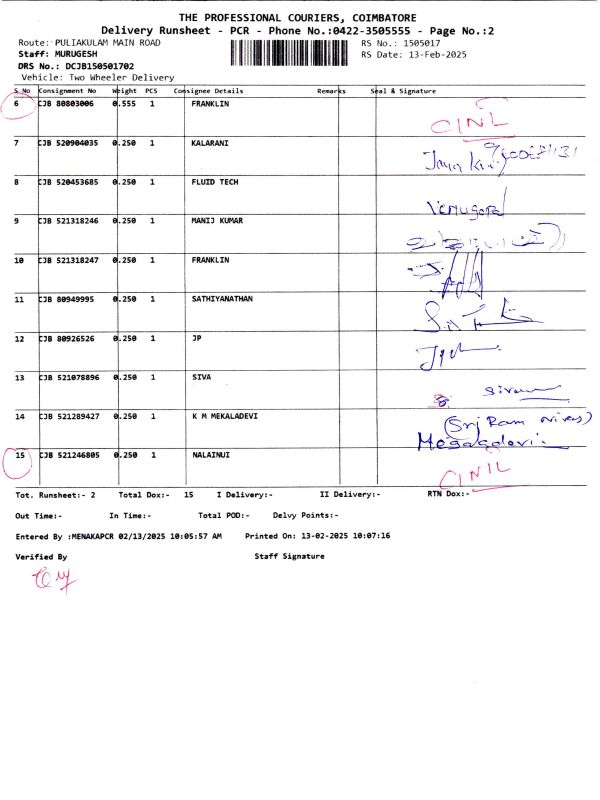 THE PROFESSIONAL COURIERS, COIMBATORE
Delivery Runsheet - PCR - Phone No.:0422-3505555 - Page No.:2
Route: PULIAKULAM MAIN ROAD RS No.: 1505017
Staff: MURUGESH RS Date: 13-Feb-2025
DRS No.: DCJB150501702
Vehicle: Two Wheeler Delivery
S No Consignment No Weight PCS Consignee Details Remarks Seal & Signature
6 CJB 80803006 0.555 1 FRANKLIN
7 CJB 520904035 0.250 1 KALARANI
8 CJB 520453685 0.250 1 FLUID TECH Venugopal
9 CJB 521318246 0.250 1 MANIJ KUMAR
10 CJB 521318247 0.250 1 FRANKLIN
11 CJB 80949995 0.250 1 SATHIYANATHAN
12 CJB 80926526 0.250 1 JP
13 CJB 521078896 0.250 1 SIVA
14 CJB 521289427 0.250 1 K M MEKALADEVI (Sri Ram nivas)
15 CJB 521246805 0.250 1 NALAINUI
Tot. Runsheet:- 2 Total Dox:- 15 I Delivery:- II Delivery:- RTN Dox:-
Out Time:- In Time:- Total POD:- Delvy Points:-
Entered By :MENAKAPCR 02/13/2025 10:05:57 AM Printed On: 13-02-2025 10:07:16
Verified By Staff Signature